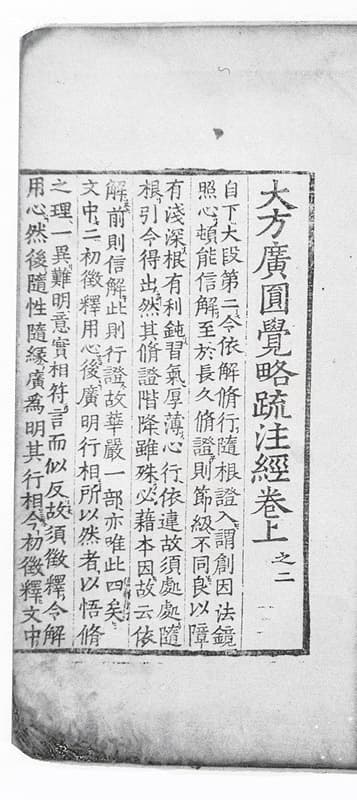 大方廣圓覺略䟽注經卷上之二
自下大段第二令依解俻行隨根證入謂創因法鏡
照心頓能信解至於長久俻證則節級不同良以障
有淺深根有利鈍習氣厚薄心行依違故須處處隨
根引令得出然其俻證階降雖殊必藉本因故云依
解前則信解此則行證故華嚴一部亦唯此四矣
文中二初徵釋用心後廣明行相所以然者以悟俻
之理一異難明意實相符言而似反故須徵釋令解
用心然後隨性隨縁廣爲明其行相今初徵釋文中